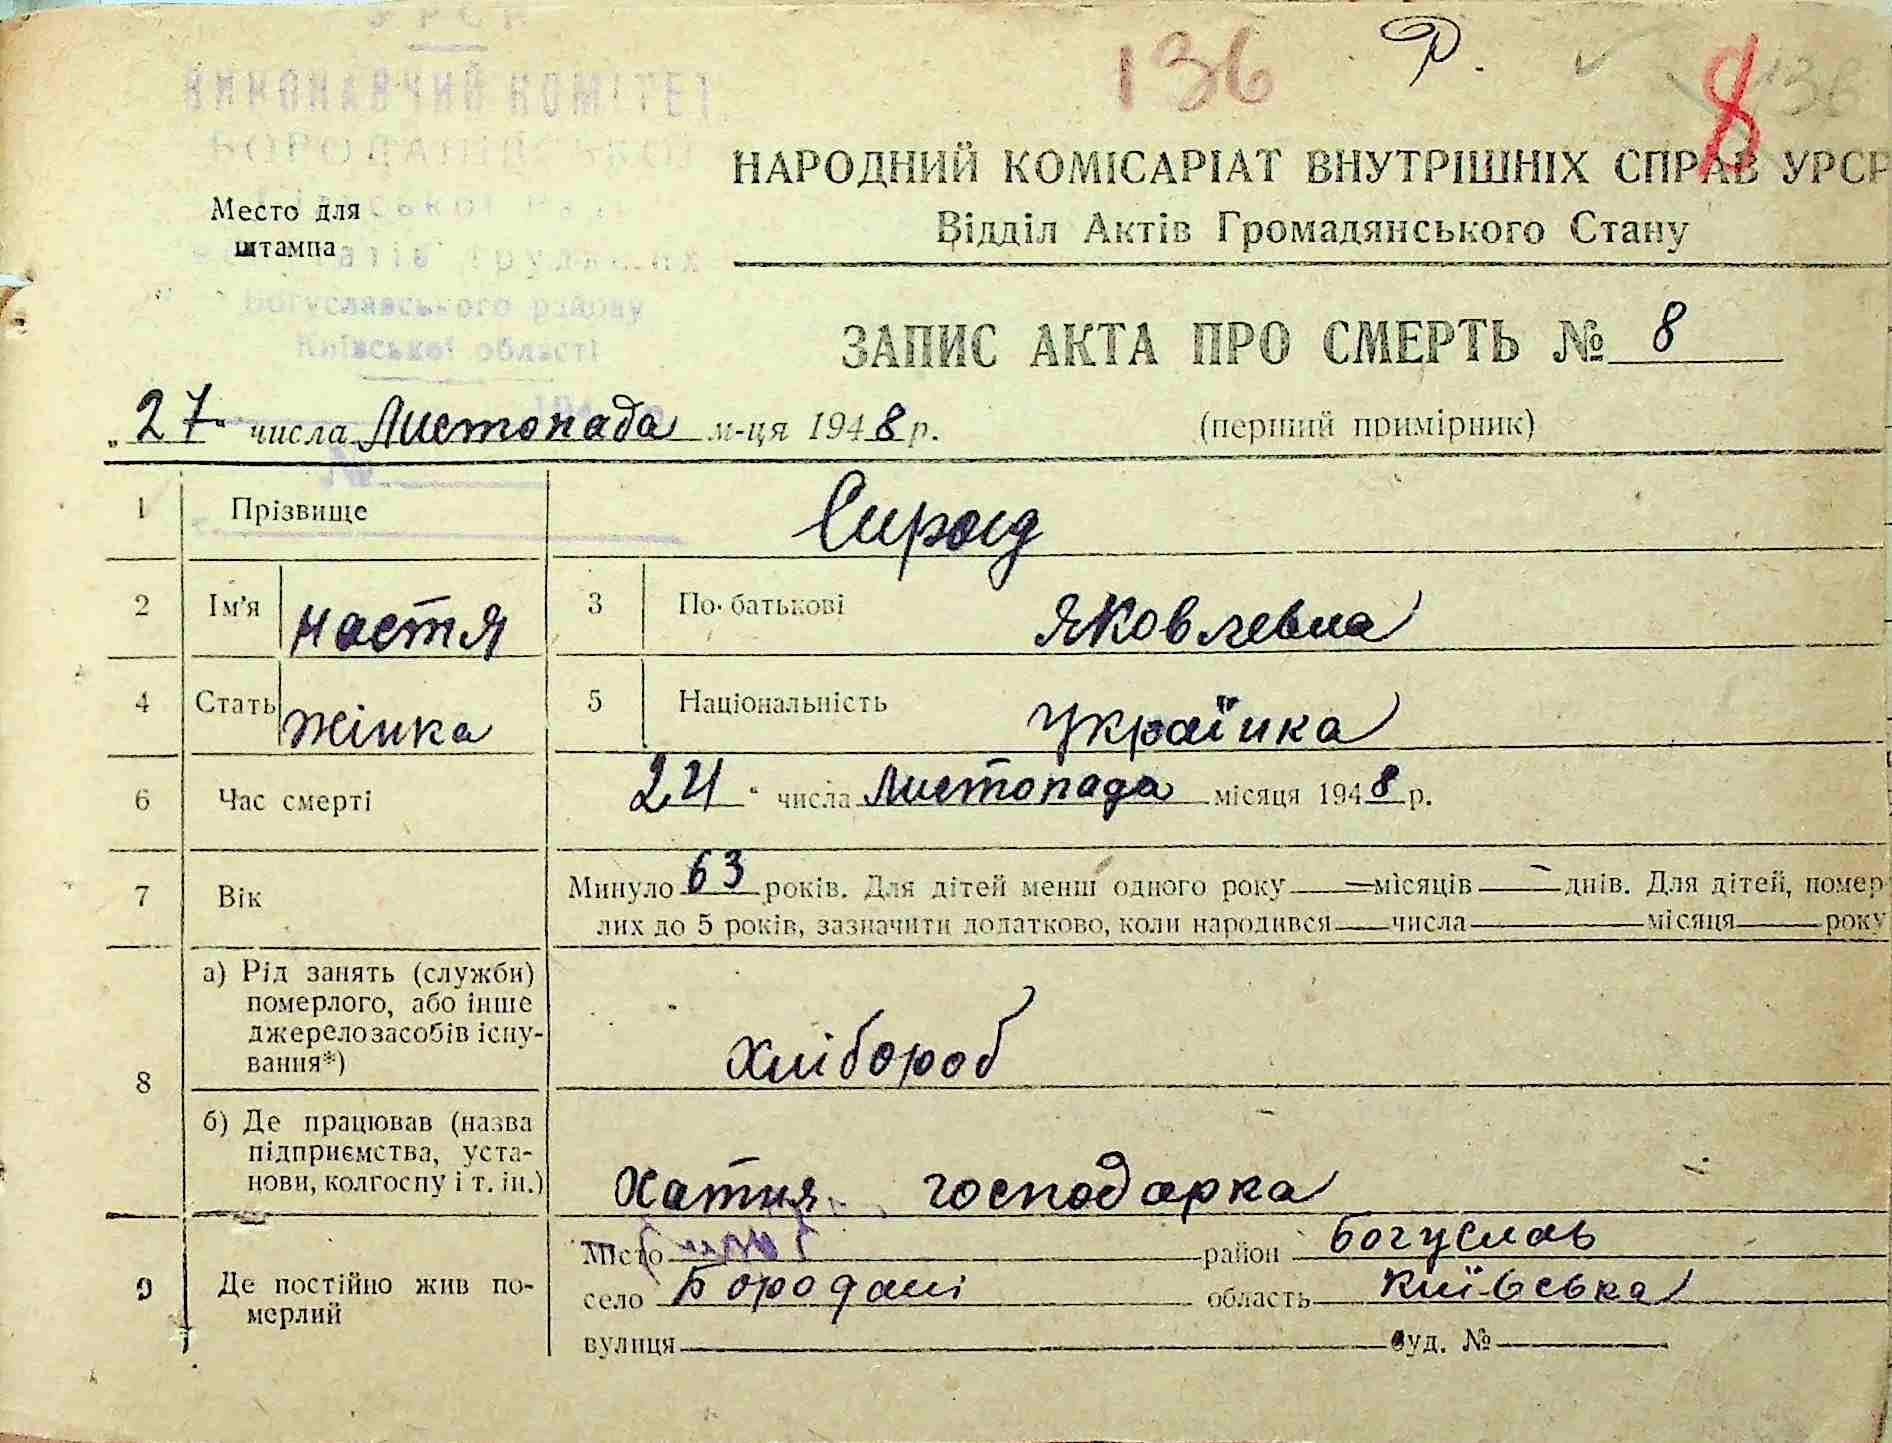 УРСР
ВИКОНАВЧИЙ КОМІТЕТ
136 Р. 8 136
НАРОДНИЙ КОМІСАРІАТ ВНУТРІШНІХ СПРАВ УРСР
Відділ Актів Громадянського Стану
Место для
штампа
Богуславського району
Київської області
ЗАПИС АКТА ПРО СМЕРТЬ № 8
„27“ числа Листопада м-ця 1948 р. (перший примірник)
№
1 Прізвище Сироїд
2 Ім'я Настя 3 По-батькові Яковлевна
4 Стать жінка 5 Національність Українка
6 Час смерті 24 “ числа Листопада місяця 1948 р.
7 Вік Минуло 63 років. Для дітей менш одного року — місяців — днів. Для дітей, помер-
лих до 5 років, зазначити додатково, коли народився числа місяця року
8 а) Рід занять (служби)
померлого, або інше
джерело засобів існу-
вання*) Хлібороб
б) Де працював (назва
підприємства, уста-
нови, колгоспу і т. ін.) Хатня господарка
9 Де постійно жив по-
мерлий
Місто район Богуслав
село Бородані область Київська
вулиця буд. №